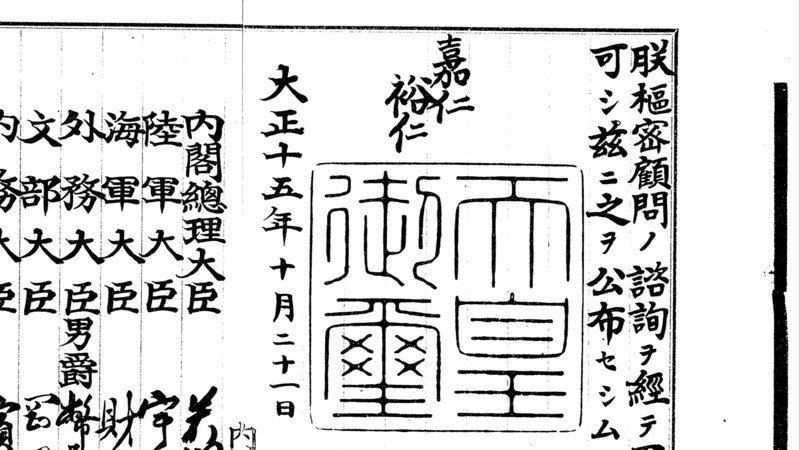 朕樞密顧問ノ諮詢ヲ經テ
可シ茲ニ之ヲ公布セシム
嘉仁
裕仁
天皇
御璽
大正十五年十月二十一日
内
内閣總理大臣 若
陸軍大臣 宇
海軍大臣 財
外務大臣男爵幣
文部大臣 岡
内務大臣